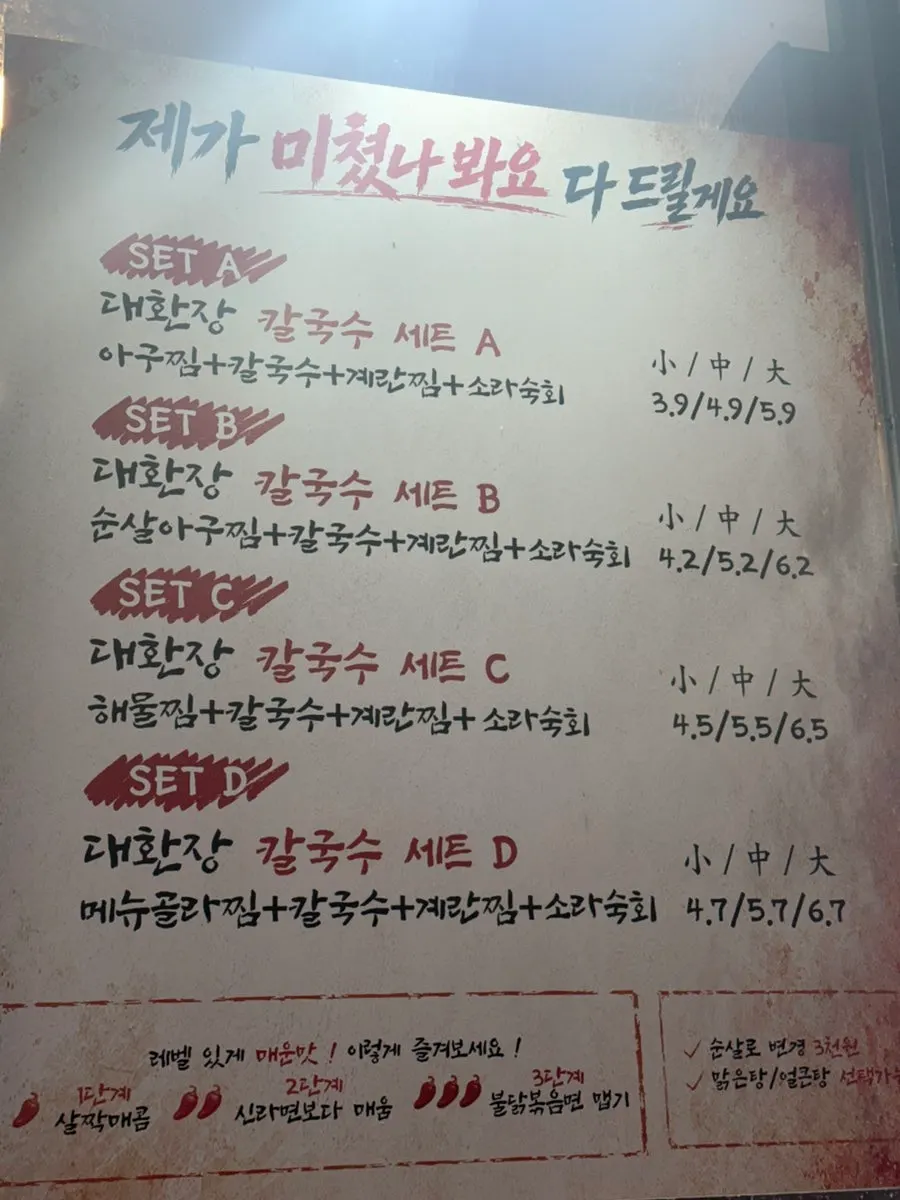 제가 미쳤나 봐요 다 드릴게요
SET A
대환장 칼국수 세트 A
아구찜+칼국수+계란찜+소라숙회
小 / 中 / 大
3.9/4.9/5.9
SET B
대환장 칼국수 세트 B
순살아구찜+칼국수+계란찜+소라숙회
小 / 中 / 大
4.2/5.2/6.2
SET C
대환장 칼국수 세트 C
해물찜+칼국수+계란찜+소라숙회
小 / 中 / 大
4.5/5.5/6.5
SET D
대환장 칼국수 세트 D
메뉴골라찜+칼국수+계란찜+소라숙회
小 / 中 / 大
4.7/5.7/6.7
레벨 있게 매운맛! 이렇게 즐겨보세요!
1단계
살짝매콤
2단계
신라면보다 매움
3단계
불닭볶음면 맵기
✓ 순살로 변경 3천원
✓ 맑은탕/얼큰탕 선택가능